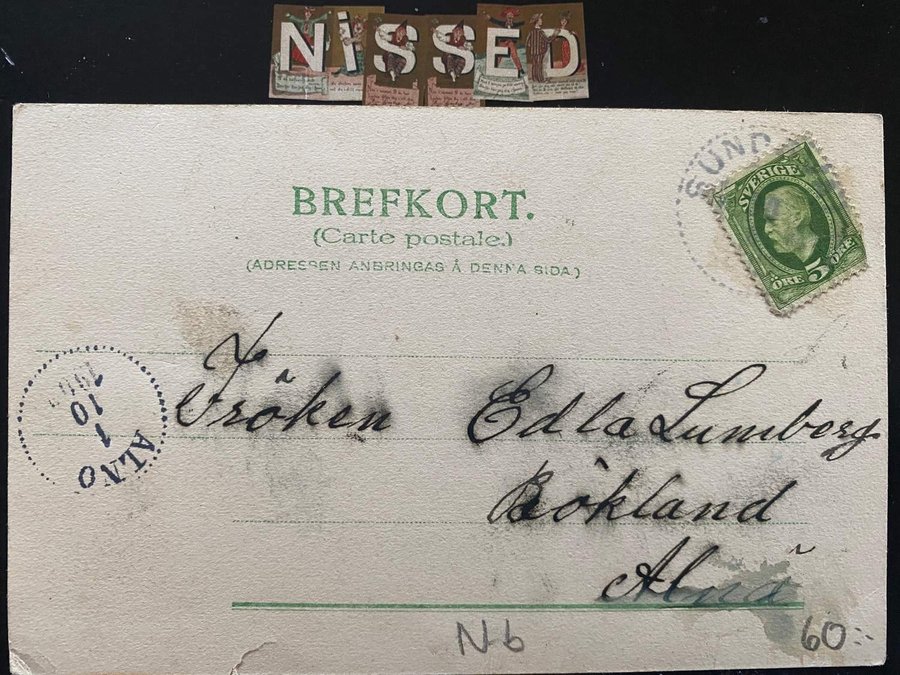 NISSED
BREFKORT.
(Carte postale.)
(ADRESSEN ANBRINGAS Å DENNA SIDA.)
SUND
SVERIGE
5
ÖRE
ÖRE
ALNÖ
1
10
Fröken Edla Lumborg
Bökland
Alnö
N-b
60:-